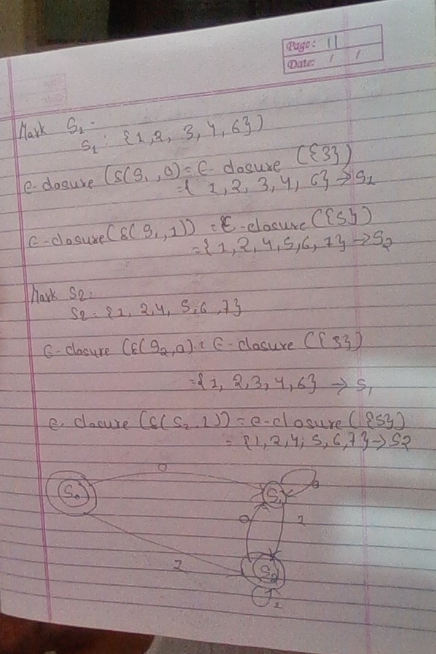 Page: 11
Date: / /
Mark S1.
S1: {1,2, 3,4,6})
ϵ-closure (δ(S1,0) = ϵ- closure ({3})
= { 1, 2, 3,4, 6} → S1
ϵ-closure(δ(S1,1)) = ϵ-closure({5})
= {1,2,4,5,6,7} → S2
Mark S2:
S2 = {1, 2,4, 5,6,7}
ϵ-closure (δ(S2,0) = ϵ-closure ({3})
= {1, 2,3,4,6} → S1
ϵ-closure (δ(S2,1)) = ϵ-closure({5})
= {1,2,4,5,6,7} → S2
0
S0 S1 0
0 1
1 S2
1